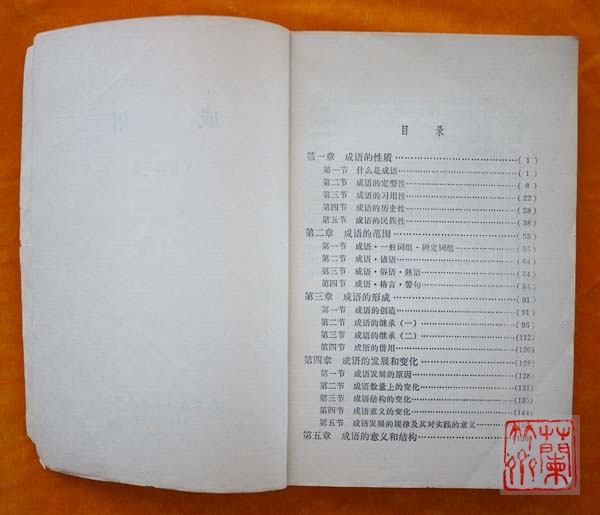 成语
目录
第一章 成语的性质……(1)
第一节 什么是成语……(1)
第二节 成语的定型性……(8)
第三节 成语的习用性……(22)
第四节 成语的历史性……(28)
第五节 成语的民族性……(38)
第二章 成语的范围……(55)
第一节 成语·一般词组·固定词组……(55)
第二节 成语·谚语……(64)
第三节 成语·俗语·熟语……(74)
第四节 成语·格言·警句……
第三章 成语的形成……(91)
第一节 成语的创造……(91)
第二节 成语的继承(一)……(96)
第三节 成语的继承(二)……(112)
第四节 成语的借用……(120)
第四章 成语的发展和变化……(128)
第一节 成语发展的原因……(128)
第二节 成语数量上的变化……(131)
第三节 成语结构的变化……(135)
第四节 成语意义的变化……(144)
第五节 成语发展的规律及其对实践的意义……
第五章 成语的意义和结构……
蘭